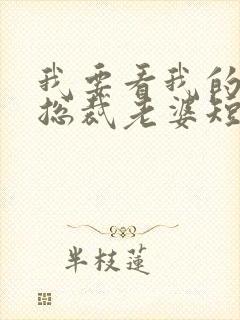 我要看我的
总裁老婆短
半枝莲